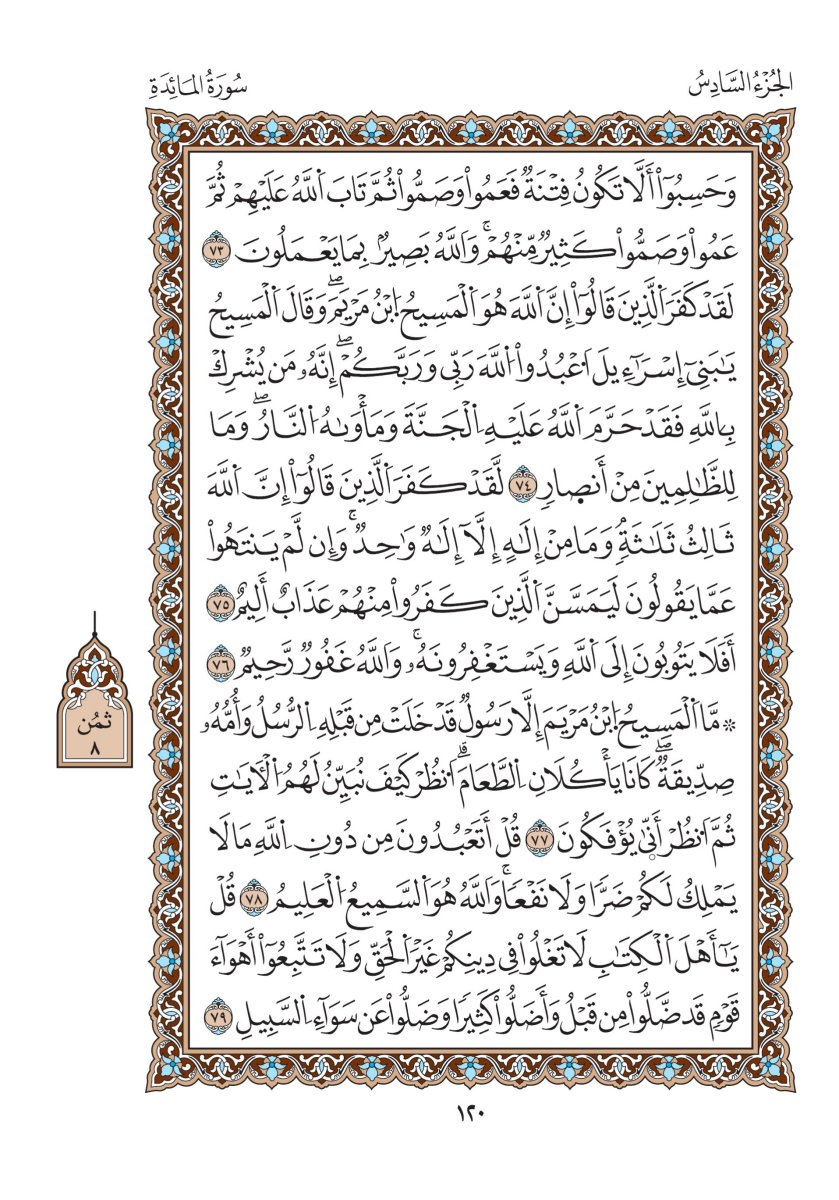 الجُزْءُ السَّادِسُ
سُورَةُ المَائِدَةِ
وَحَسِبُوٓاْ أَلَّا تَكُونُ فِتْنَةٌ فَعَمُواْ وَصَمُّواْ ثُمَّ تَابَ اَ۬للَّهُ عَلَيْهِمْ ثُمَّ
عَمُواْ وَصَمُّواْ كَثِيرٌ مِّنْهُمْۚ وَاللَّهُ بَصِيرُۢ بِمَا يَعْمَلُونَ ٧٣
لَقَدْ كَفَرَ اَ۬لَّذِينَ قَالُوٓاْ إِنَّ اَ۬للَّهَ هُوَ اَ۬لْمَسِيحُ اُ۪بْنُ مَرْيَمَۖ وَقَالَ اَ۬لْمَسِيحُ
يَٰبَنِيٓ إِسْرَآءِيلَ اَ۟عْبُدُواْ اُ۬للَّهَ رَبِّي وَرَبَّكُمْۖ إِنَّهُۥ مَن يُشْرِكْ
بِاللَّهِ فَقَدْ حَرَّمَ اَ۬للَّهُ عَلَيْهِ اِ۬لْجَنَّةَ وَمَأْوَىٰهُ اُ۬لنَّارُۖ وَمَا
لِلظَّٰلِمِينَ مِنْ أَنصارٖ ٧٤ لَّقَدْ كَفَرَ اَ۬لَّذِينَ قَالُوٓاْ إِنَّ اَ۬للَّهَ
ثَالِثُ ثَلَٰثَةٖۘ وَمَا مِنْ إِلَٰهٍ إِلَّآ إِلَٰهٌ وَٰحِدٌۚ وَإِن لَّمْ يَنتَهُواْ
عَمَّا يَقُولُونَ لَيَمَسَّنَّ اَ۬لَّذِينَ كَفَرُواْ مِنْهُمْ عَذَابٌ أَلِيمٌ ٧٥
أَفَلَا يَتُوبُونَ إِلَى اَ۬للَّهِ وَيَسْتَغْفِرُونَهُۥۚ وَاللَّهُ غَفُورٌ رَّحِيمٌ ٧٦
۞ مَّا اَ۬لْمَسِيحُ اُ۪بْنُ مَرْيَمَ إِلَّا رَسُولٌ قَدْ خَلَتْ مِن قَبْلِهِ اِ۬لرُّسُلُ وَأُمُّهُۥ
صِدِّيقَةٌۖ كَانَا يَأْكُلَانِ اِ۬لطَّعَامَۗ اَ۟نظُرْ كَيْفَ نُبَيِّنُ لَهُمُ اُ۬لْأٓيَٰتِ
ثُمَّ اَ۟نظُرْ أَنّ۪يٰ يُؤْفَكُونَ ٧٧ قُلْ أَتَعْبُدُونَ مِن دُونِ اِ۬للَّهِ مَا لَا
يَمْلِكُ لَكُمْ ضَرّٗا وَلَا نَفْعٗاۚ وَاللَّهُ هُوَ اَ۬لسَّمِيعُ اُ۬لْعَلِيمُ ٧٨ قُلْ
يَٰٓأَهْلَ اَ۬لْكِتَٰبِ لَا تَغْلُواْ فِي دِينِكُمْ غَيْرَ اَ۬لْحَقِّ وَلَا تَتَّبِعُوٓاْ أَهْوَآءَ
قَوْمٖ قَد ضَّلُّواْ مِن قَبْلُ وَأَضَلُّواْ كَثِيرٗا وَضَلُّواْ عَن سَوَآءِ اِ۬لسَّبِيلِ ٧٩
ثمُن
٨
١٢٠